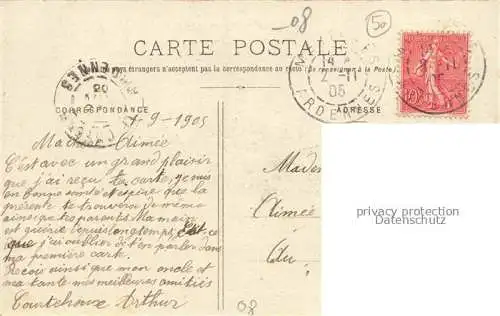 08
50
CARTE POSTALE
pays étrangers n'acceptent pas la correspondance au recto (se renseigner à la Poste)
CORRESPONDANCE
ADRESSE
14
7-11
05
ARDE
7-9-1905
Aimée
C'est avec un grand plaisir
que j'ai reçu ta carte, je suis
en bonne santé et espère que la
présente te trouvera de même
ainsi que tes parents Ma
est guérie depuis longtemps, c'est ce
que j'ai oublié de t'en parler dans
ma première carte.
Reçois ainsi que mon oncle et
ma tante mes meilleures amitiés
Courtehoux Arthur
Aimée
privacy protection
Datenschutz
08